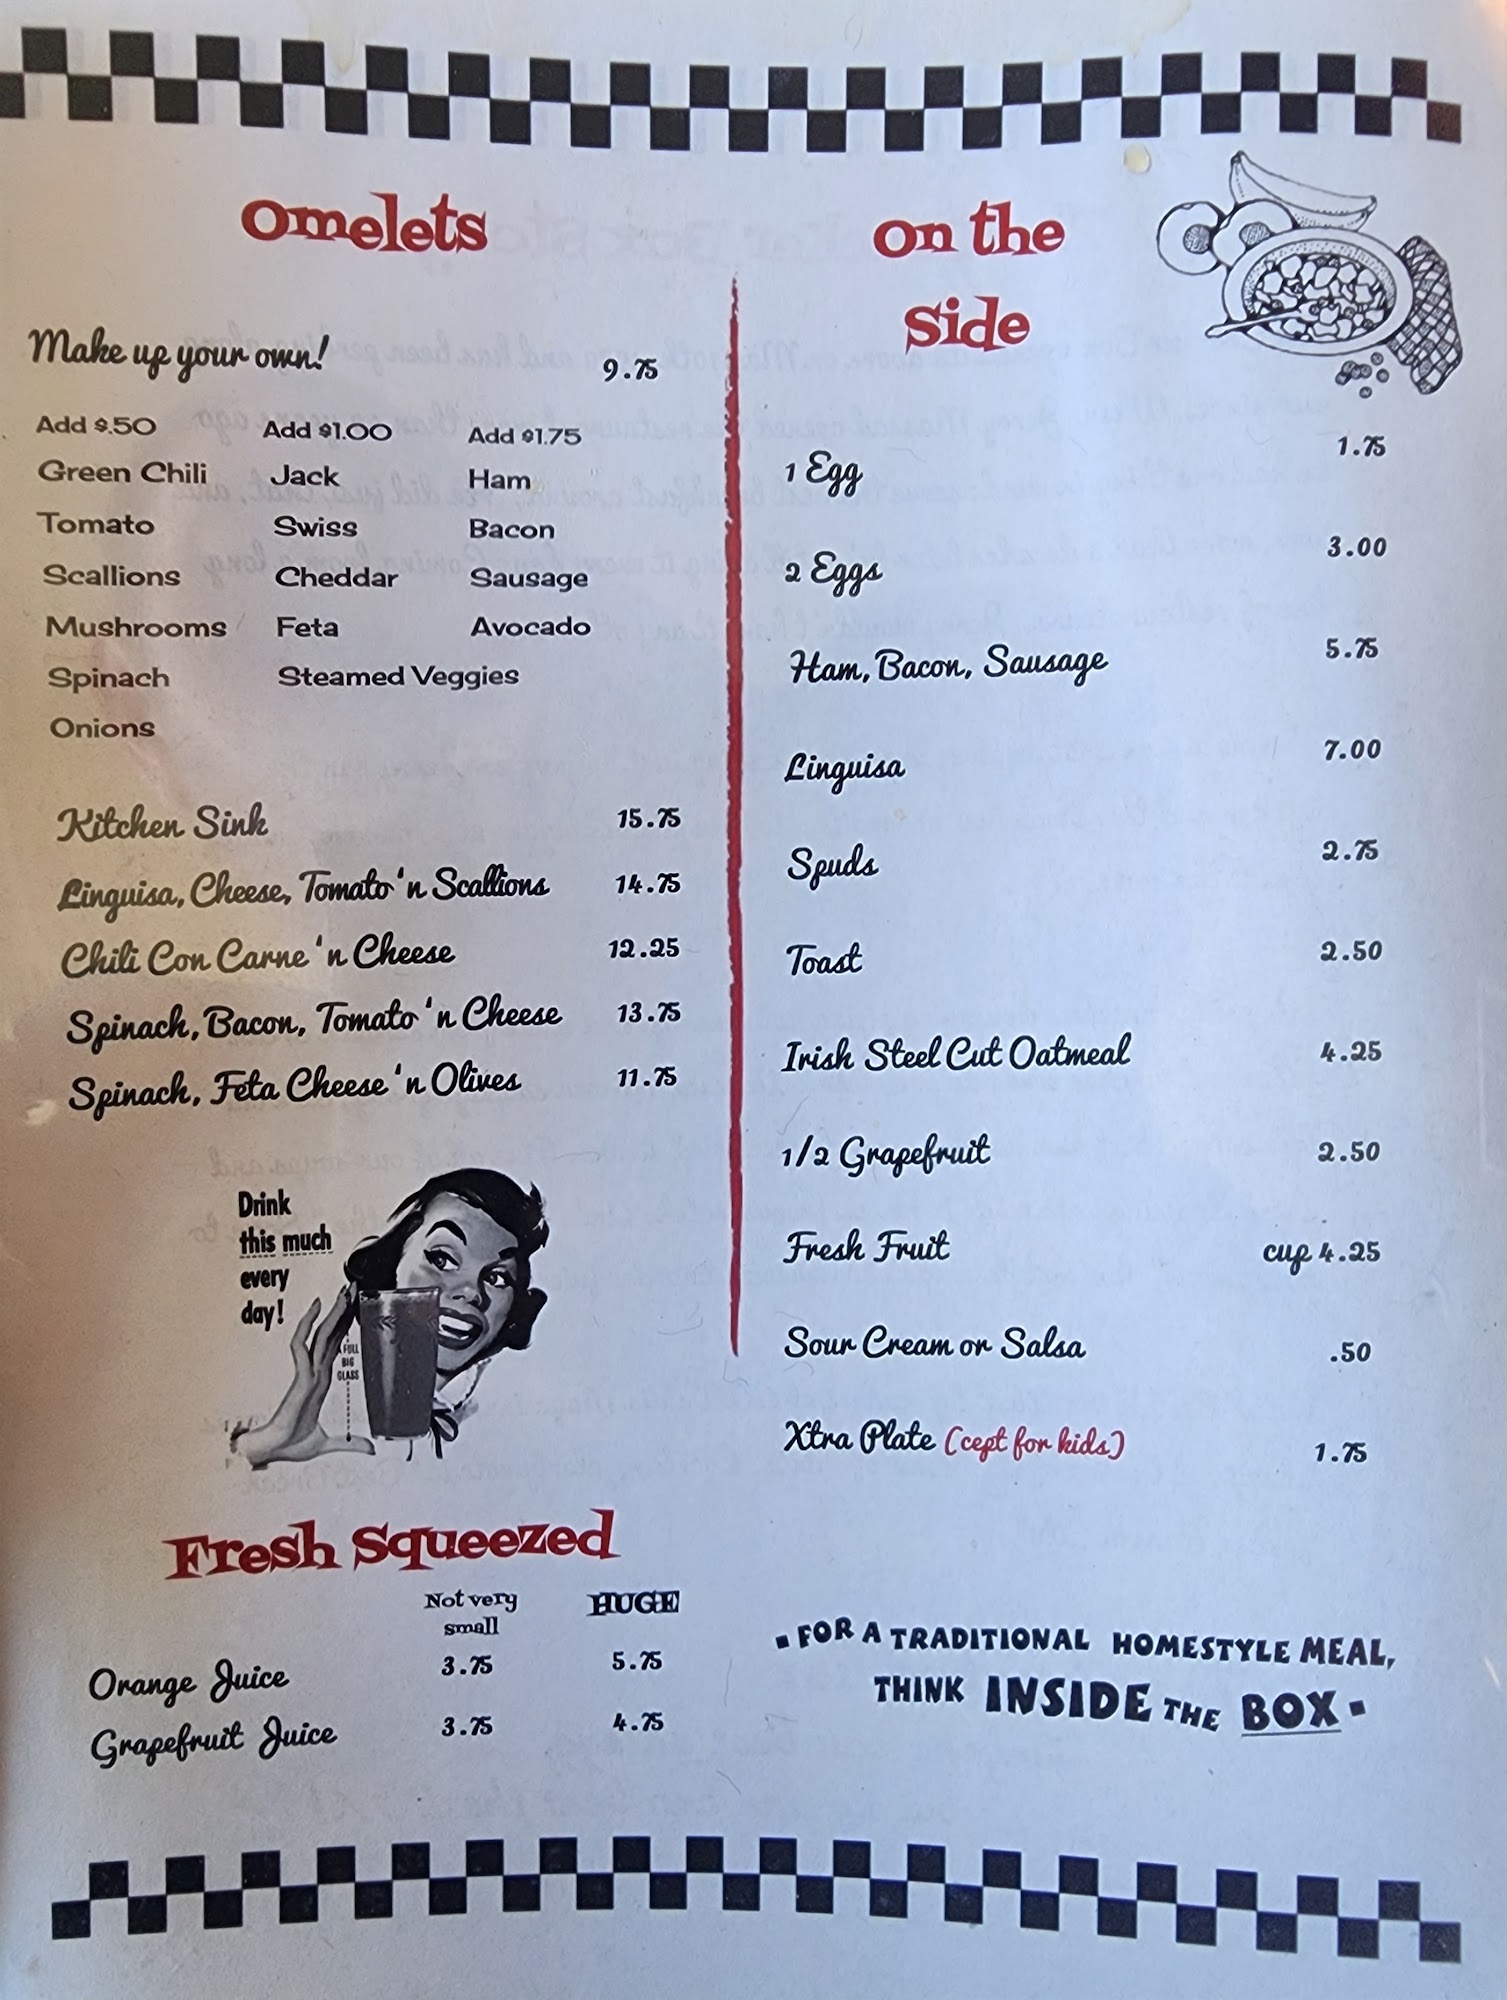 Omelets
Make up your own! 9.75
Add $.50 Add $1.00 Add $1.75
Green Chili Jack Ham
Tomato Swiss Bacon
Scallions Cheddar Sausage
Mushrooms Feta Avocado
Spinach Steamed Veggies
Onions
Kitchen Sink 15.75
Linguisa, Cheese, Tomato 'n Scallions 14.75
Chili Con Carne 'n Cheese 12.25
Spinach, Bacon, Tomato 'n Cheese 13.75
Spinach, Feta Cheese 'n Olives 11.75
Drink
this much
every
day!
A FULL
BIG
GLASS
Fresh Squeezed
Not very HUGE
small
Orange Juice 3.75 5.75
Grapefruit Juice 3.75 4.75
On the
Side
1 Egg 1.75
2 Eggs 3.00
Ham, Bacon, Sausage 5.75
Linguisa 7.00
Spuds 2.75
Toast 2.50
Irish Steel Cut Oatmeal 4.25
1/2 Grapefruit 2.50
Fresh Fruit cup 4.25
Sour Cream or Salsa .50
Xtra Plate (cept for kids) 1.75
FOR A TRADITIONAL HOMESTYLE MEAL,
THINK INSIDE THE BOX